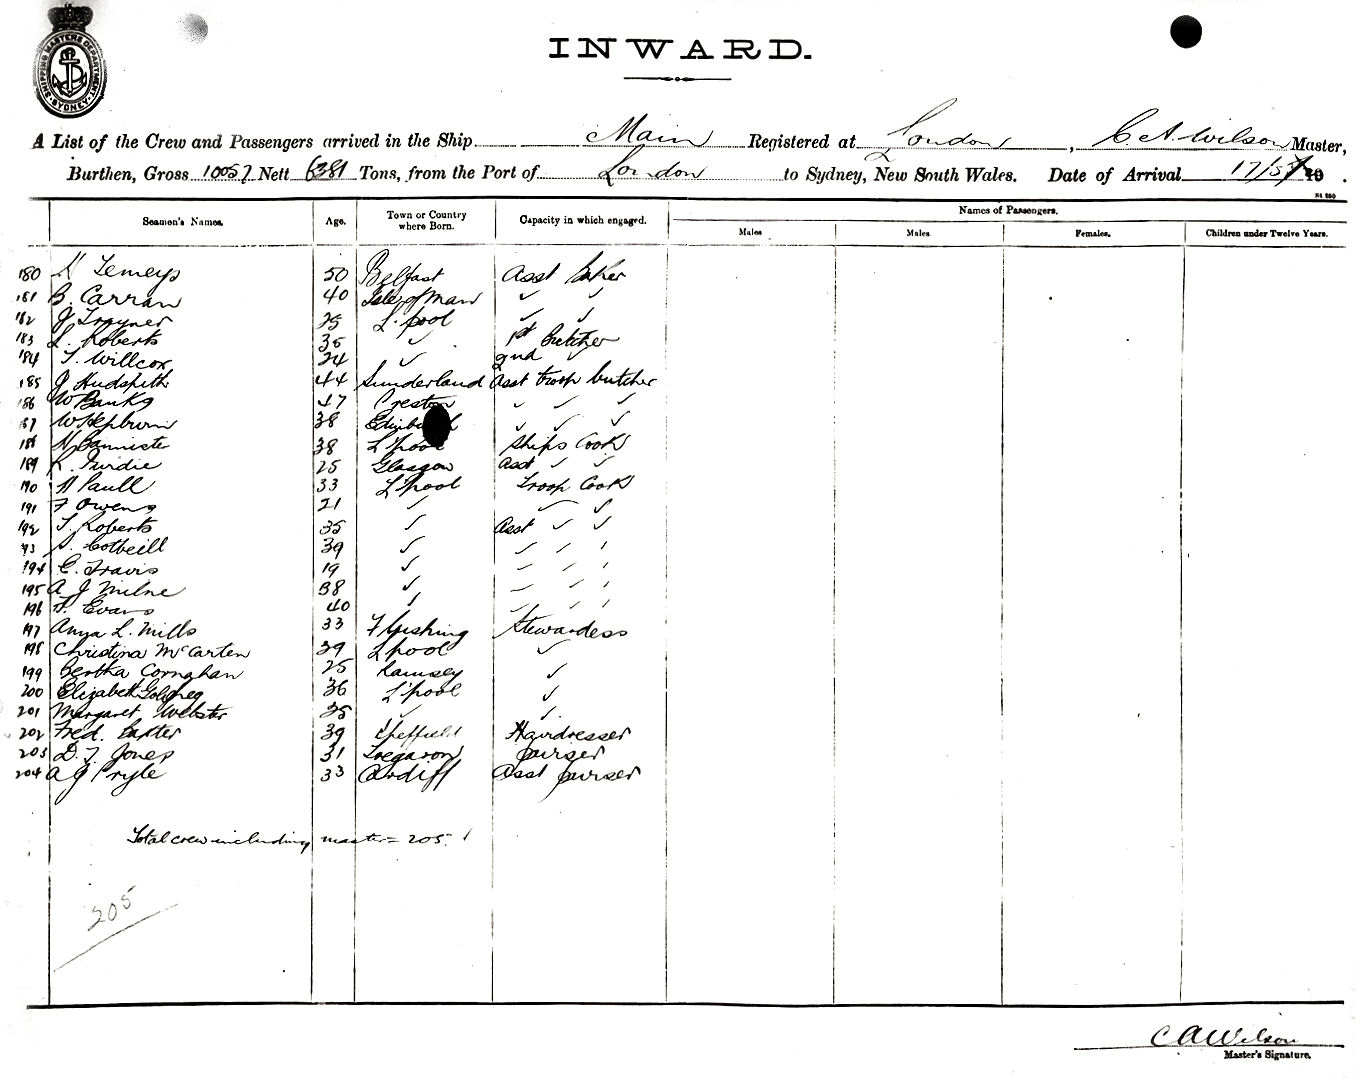 SHIPPING MASTERS DEPARTMENT SYDNEY
INWARD.
A List of the Crew and Passengers arrived in the Ship Main Registered at London, C. A. Wilson Master,
Burthen, Gross 10057 Nett 6381 Tons, from the Port of London to Sydney, New South Wales. Date of Arrival 17/5/
Seamen's Names. Age. Town or Country where Born. Capacity in which engaged. Names of Passengers.
Males Males Females. Children under Twelve Years.
180 50 Belfast Asst Baker
181 B. Carran 40 Isle of Man ✓ ✓
182 J Traynor 25 L'pool ✓ ✓
183 L. Roberts 35 ✓ 1st Butcher
184 T. Willcox 24 ✓ 2nd ✓
185 J Hudspith 44 Sunderland Asst troop butcher
186 W Banks 47 Preston ✓ ✓ ✓
187 W Hepburn 38 ✓ ✓ ✓
188 H Bannister 38 L'pool Ships Cook
189 25 Glasgow Asst ✓ ✓
190 H Paull 33 L'pool Troop Cook
191 F Owens 21 ✓ ✓ ✓
192 T. Roberts 35 ✓ Asst ✓ ✓
193 39 ✓ ✓ ✓ ✓
194 C. Travis 19 ✓ ✓ ✓ ✓
195 A J Milne 38 ✓ ✓ ✓ ✓
196 Evans 40 ✓ ✓ ✓ ✓
197 Anna L. Mills 33 Flushing Stewardess
198 Christina McCarten 39 L'pool ✓
199 Bertha Cornahan 25 Ramsey ✓
200 Elizabeth 36 L'pool ✓
201 Margaret Webster 35 ✓ ✓
202 Fred. Baxter 39 Sheffield Hairdresser
203 D. T. Jones 31 Tregaron Purser
204 A J Pryle 33 Cardiff Asst purser
Total crew including master = 205
205
C A Wilson
Master's Signature.